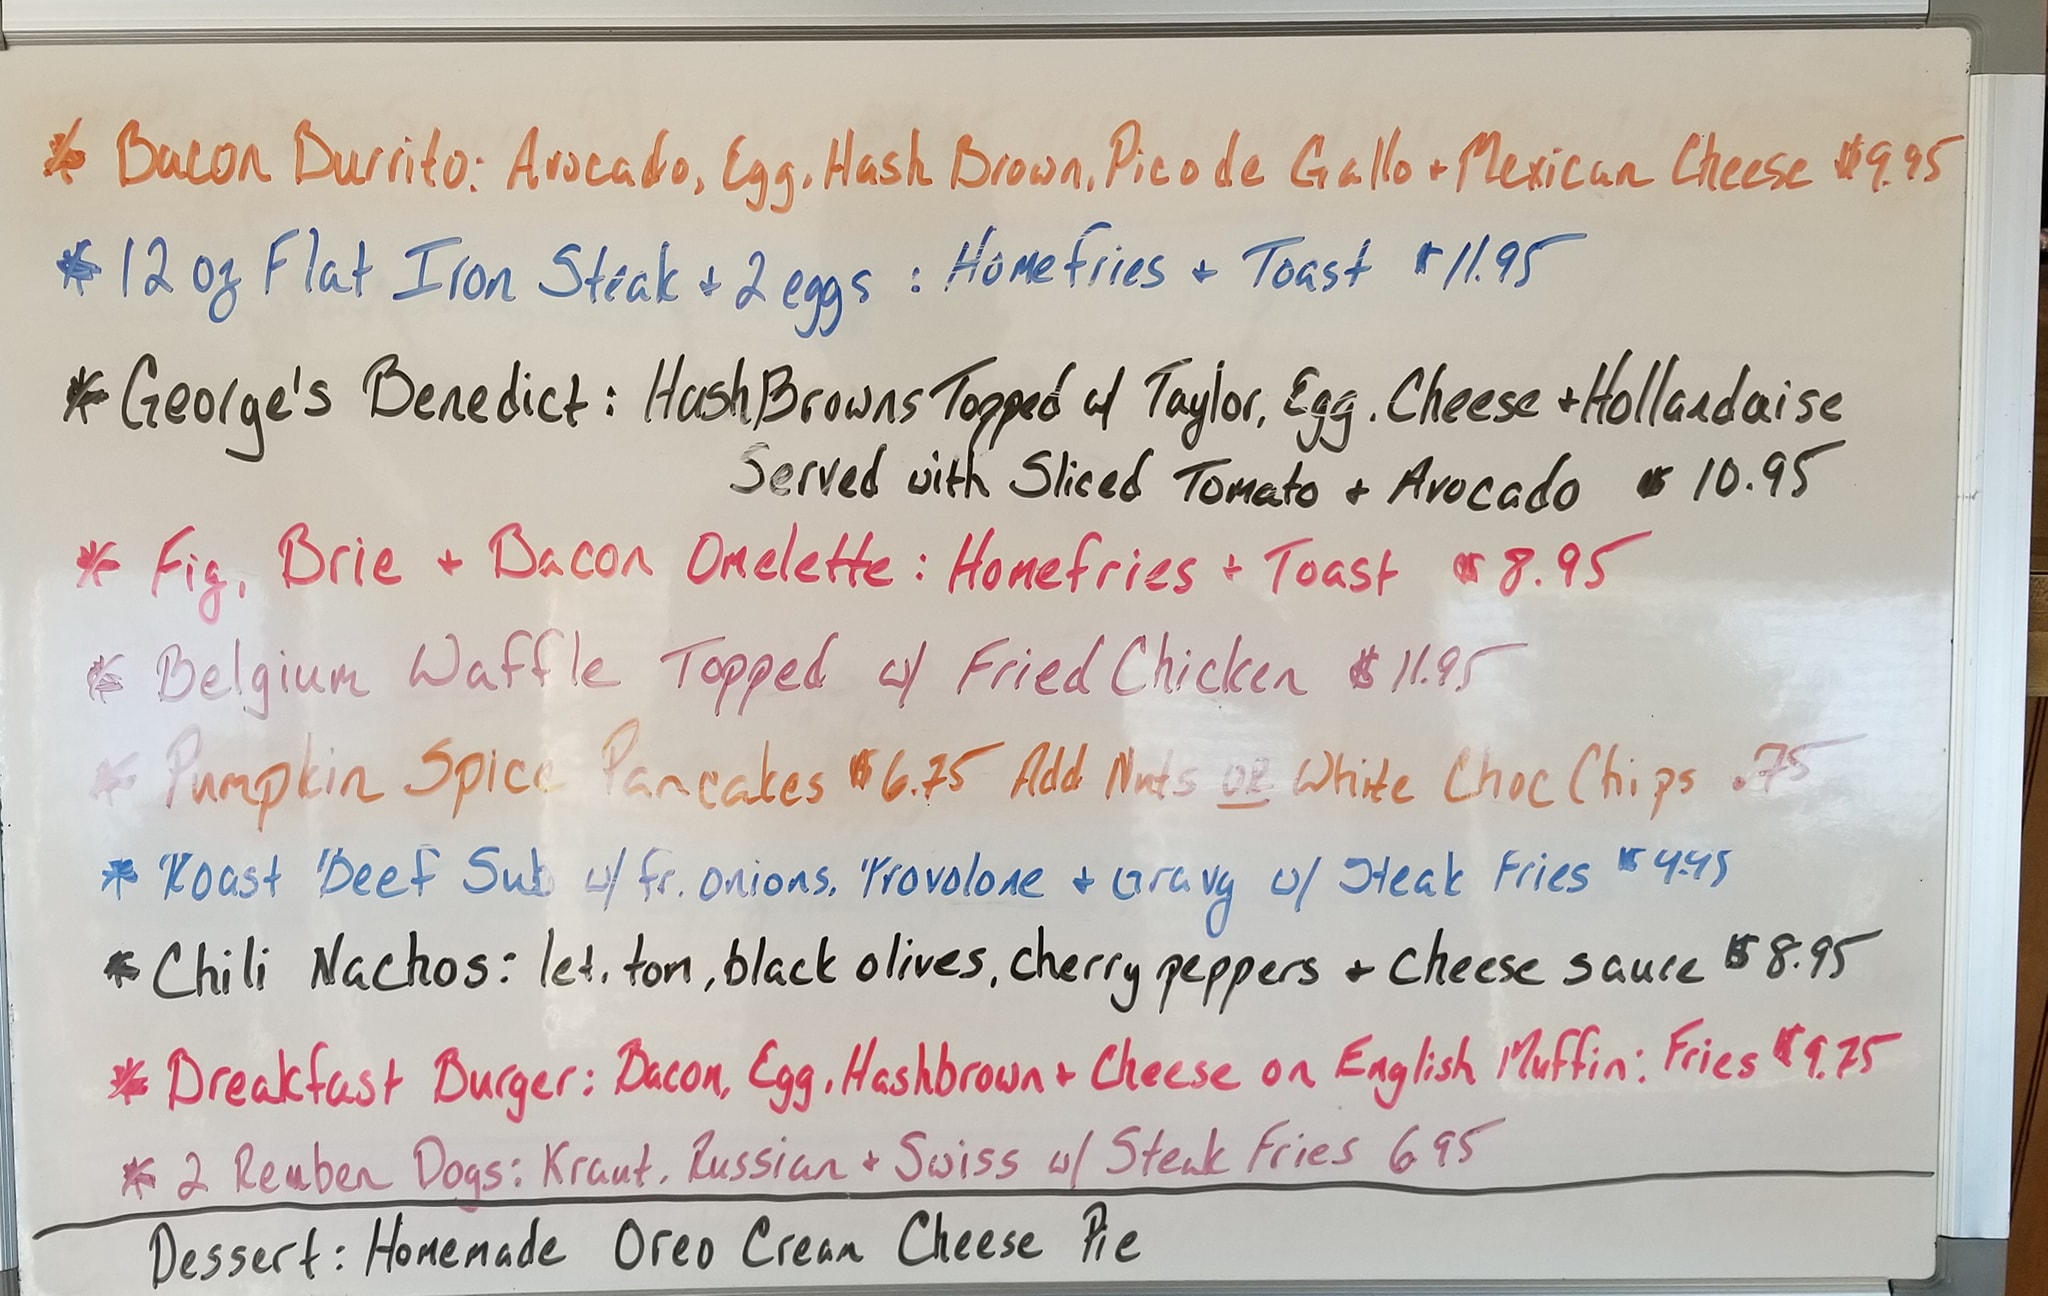 * Bacon Burrito: Avocado, Egg, Hash Brown, Pico de Gallo + Mexican Cheese $9.95
* 12 oz Flat Iron Steak + 2 eggs : Homefries + Toast $11.95
* George's Benedict: Hash Browns Topped w/ Taylor, Egg, Cheese + Hollandaise
Served with Sliced Tomato + Avocado $10.95
* Fig, Brie + Bacon Omelette: Homefries + Toast $8.95
* Belgium Waffle Topped w/ Fried Chicken $11.95
* Pumpkin Spice Pancakes $6.75 Add Nuts OR White Choc Chips .75
* Roast Beef Sub w/ fr. onions, Provolone + Gravy w/ Steak Fries $9.95
* Chili Nachos: let. tom, black olives, cherry peppers + cheese sauce $8.95
* Breakfast Burger: Bacon, Egg, Hashbrown + Cheese on English Muffin: Fries $9.75
* 2 Reuben Dogs: Kraut, Russian + Swiss w/ Steak Fries 6.95
Dessert: Homemade Oreo Cream Cheese Pie